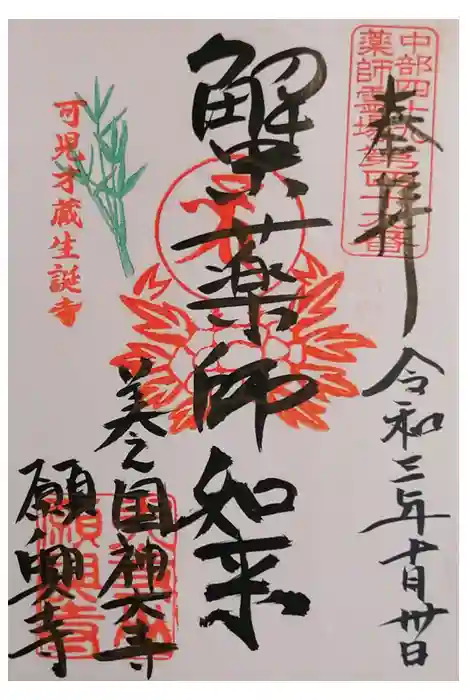 奉拝
中部四十九
薬師霊場第四十六番
令和三年十月卅日
蟹薬師如来
美之国神大寺
願興寺
可児才蔵生誕寺